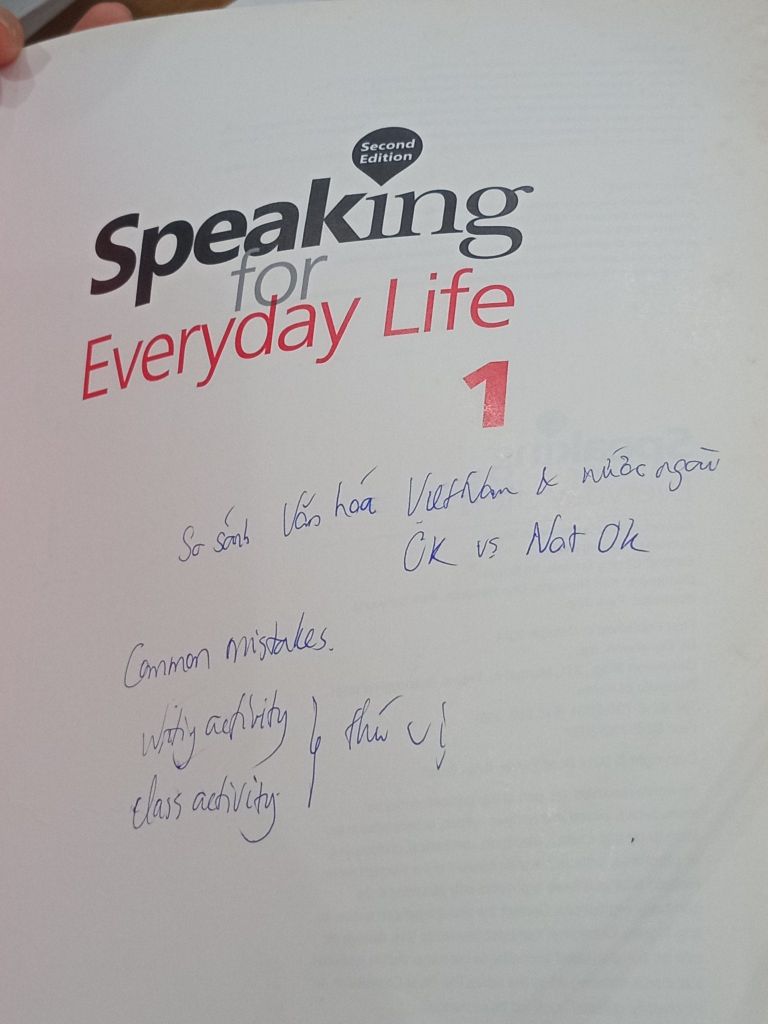 Second
Edition
Speaking
for
Everyday Life
1
So sánh Văn hoá VietNam & nước ngoài
OK vs Not Ok
Common mistakes.
writiy activity
class activity
thú vị